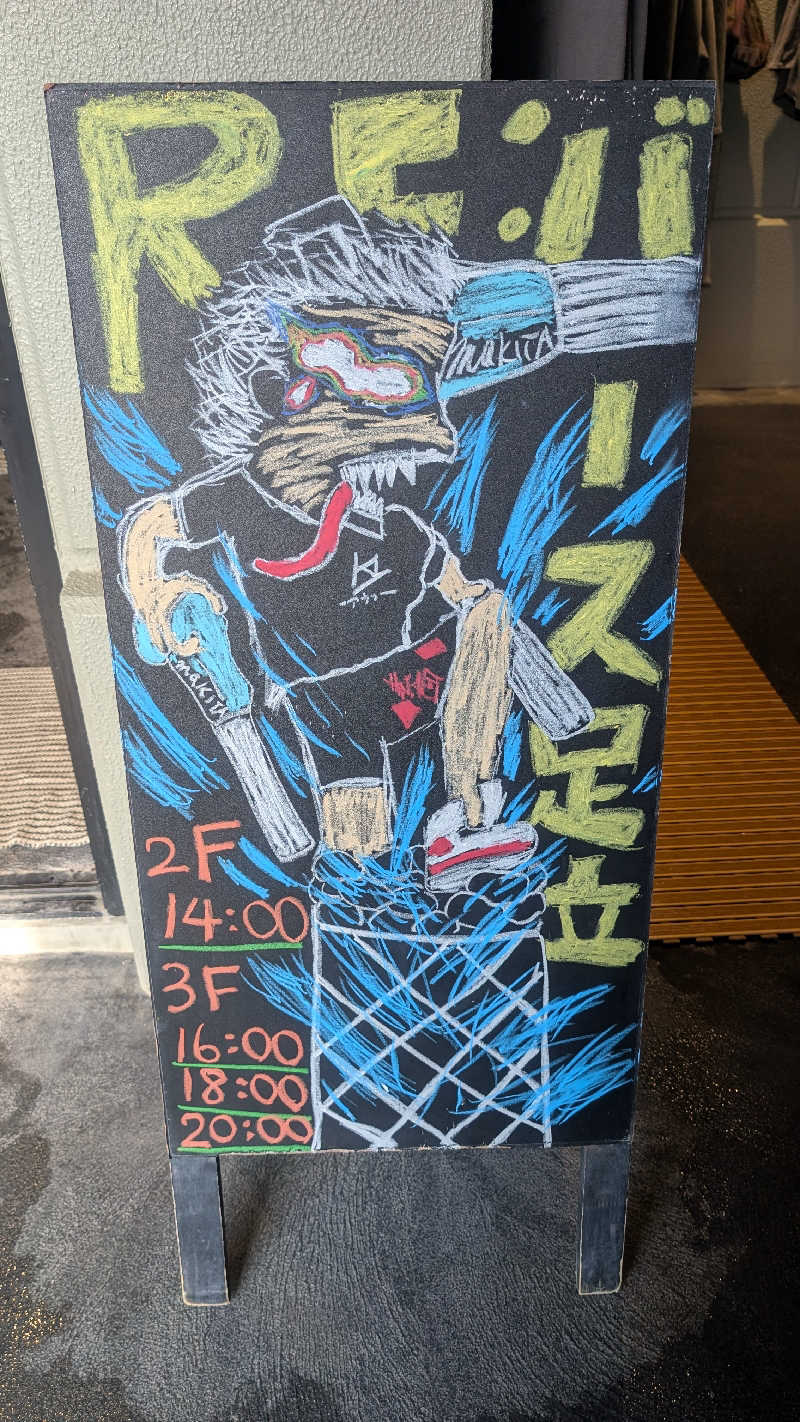 RE:バース足立
makita
makita
2F
14:00
3F
16:00
18:00
20:00